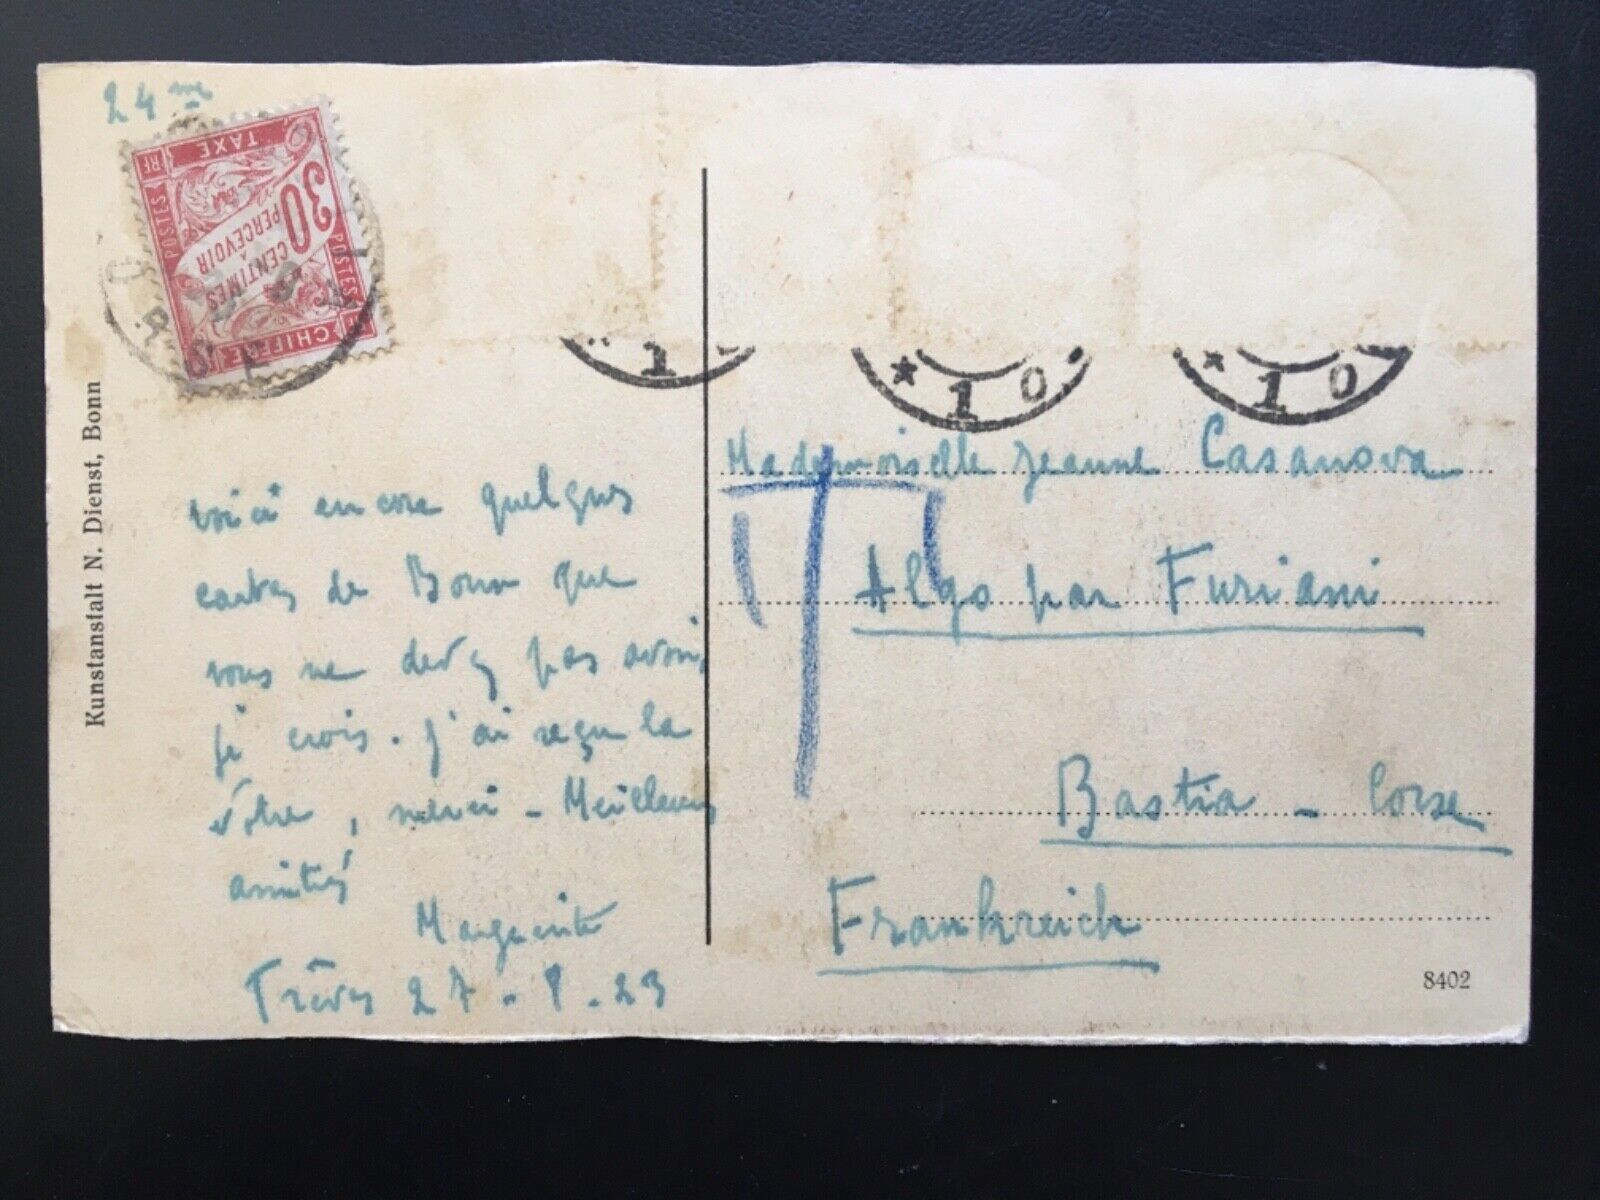 24me
POSTES RF TAXE
30
CENTIMES
À
PERCEVOIR
POSTES
CHIFFRE
CORSE
Kunstanstalt N. Dienst, Bonn
voici encore quelques
cartes de Bonn que
vous ne devez pas avoir
je crois. J'ai reçu la
vôtre, merci - Meilleures
amitiés
Marguerite
Trèves 27-8-23
1
* 10
* 10
Mademoiselle Jeanne Casanova
T
Algo par Furiani
Bastia - Corse
Frankreich
8402